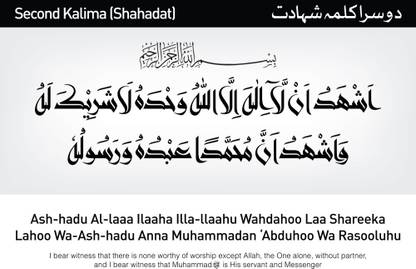 Second Kalima (Shahadat) دوسرا کلمہ شہادت
بِسْمِ اللهِ الرَّحْمٰنِ الرَّحِيْمِ
اَشْهَدُ اَنْ لَّآ اِلٰهَ اِلَّا اللهُ وَحْدَهُ لَا شَرِيْكَ لَهُ
وَاَشْهَدُ اَنَّ مُحَمَّدًا عَبْدُهُ وَرَسُولُهُ
Ash-hadu Al-laaa Ilaaha Illa-llaahu Wahdahoo Laa Shareeka
Lahoo Wa-Ash-hadu Anna Muhammadan ‘Abduhoo Wa Rasooluhu
I bear witness that there is none worthy of worship except Allah, the One alone, without partner,
and I bear witness that Muhammad ﷺ is His servant and Messenger